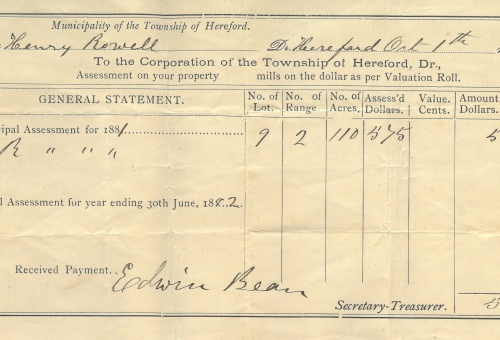 Municipality of the Township of Hereford.
Henry Rowell Dr. Hereford Oct 1th
To the Corporation of the Township of Hereford, Dr.,
Assessment on your property mills on the dollar as per Valuation Roll.
GENERAL STATEMENT. No. of Lot. No. of Range. No. of Acres. Assess'd Dollars. Value. Cents. Amount Dollars.
cipal Assessment for 1881. 9 2 110 575 5
R " " "
l Assessment for year ending 30th June, 1882.
Received Payment. Edwin Bean
Secretary-Treasurer. 5